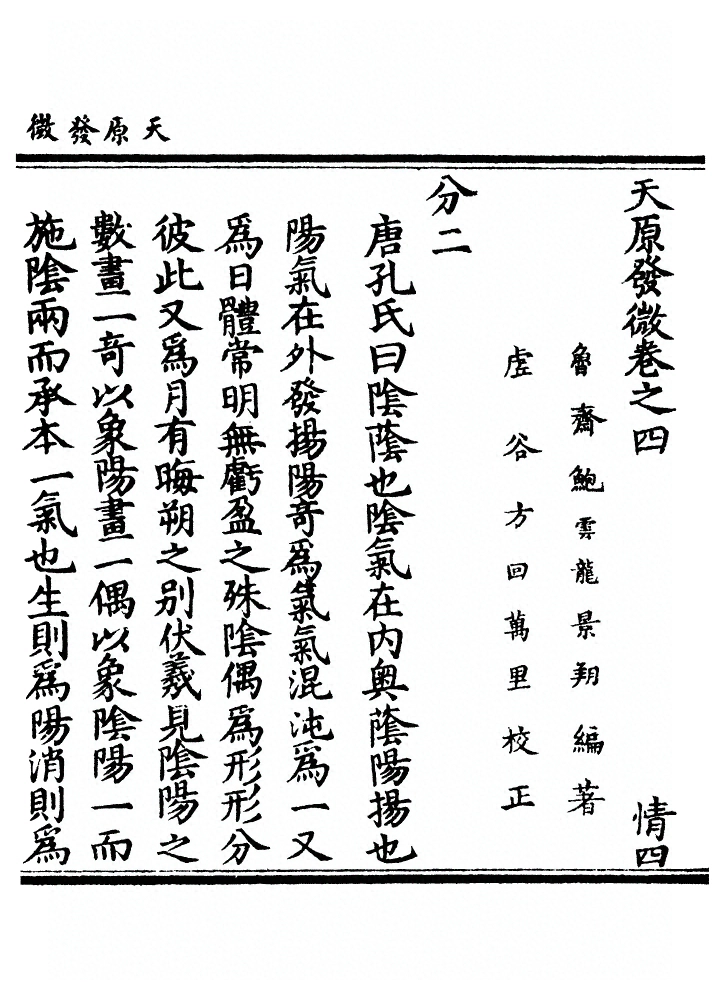 天原發微
天原發微卷之四　情四
魯齋鮑雲龍景翔編著
虛谷方回萬里校正
分二
唐孔氏曰陰蔭也陰氣在內奧蔭陽揚也
陽氣在外發揚陽奇爲氣氣混沌爲一又
爲日體常明無虧盈之殊陰偶爲形形分
彼此又爲月有晦朔之别伏羲見陰陽之
數畫一奇以象陽畫一偶以象陰陽一而
施陰兩而承本一氣也生則爲陽消則爲